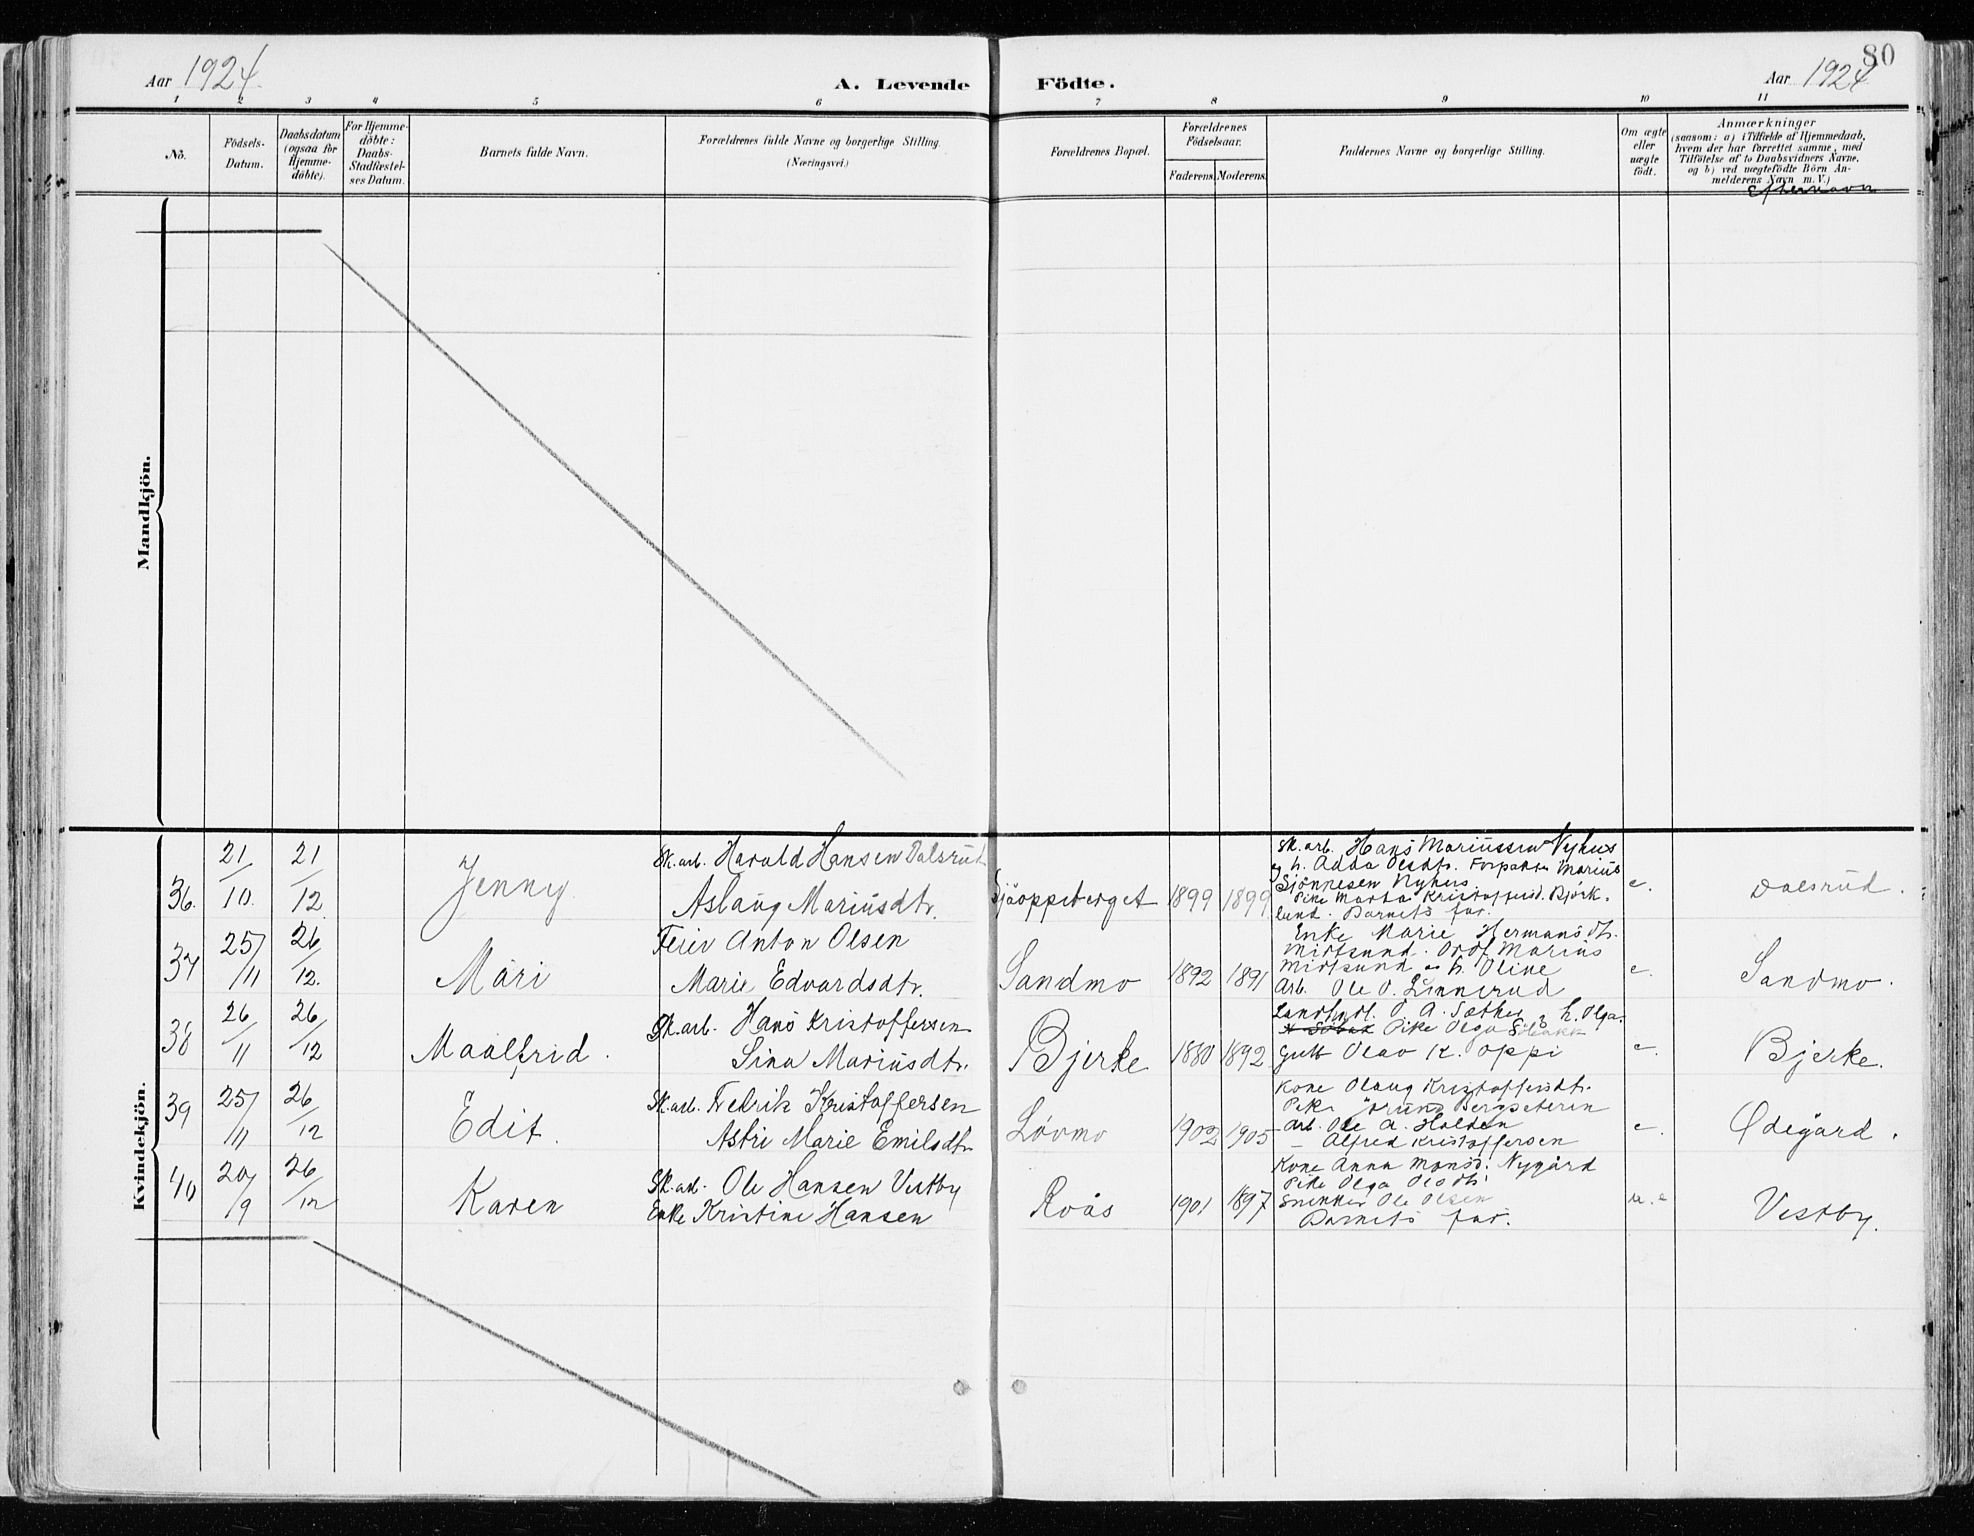 80
Aar 1924
A. Levende Födte.
Aar 1924
1 2 3 4 5 6 7 8 9 10 11
No.
Födsels-Datum.
Daabsdatum (ogsaa for Hjemme-döbte).
For Hjemme-döbte: Daabs-Stadfæstel-ses Datum.
Barnets fulde Navn.
Forældrenes fulde Navne og borgerlige Stilling.
(Næringsvei.)
Forældrenes Bopæl.
Forældrenes Födselsaar.
Faderens. Moderens.
Faddernes Navne og borgerlige Stilling.
Om ægte eller uægte födt.
Anmærkninger
(saasom: a) i Tilfælde af Hjemmedaab,
hvem der har forrettet samme, med
Tilföielse af to Daabsvidners Navne,
og b) ved uægtefödte Börn An-
melderens Navn m. V.)
Efternavn
Mandkjön.
Kvindekjön.
36. 21/10. 21/12 Jenny
Sk.arb. Harald Hansen Dalsrud
Aslaug Mariusdtr.
1899 1899
Sk.arb. Hans Mariussen Nyhus
og h. Adda Olsdtr. Forpakter Marius
Sjönnesen Nyhus
Pike Marta Kristoffersd. Björk-
lund. Barnets far.
e. Dalsrud.
37 25/11 26/12. Mari
Feier Anton Olsen
Marie Edvardsdtr.
Sandmo 1892 1891
Enke Marie Hermansdtr.
Midtsund. Ordf. Marius
Midtsund og h. Oline
Arb. Ole O. Linnerud
e. Sandmo.
38 26/11 26/12 Maalfrid.
Sk.arb. Hans Kristoffersen
Sina Mariusdtr.
Bjerke 1880 1892
Landhndl. O. A. Sæther og h. Olga.
Pike Olga
Gutt Olav K. Oppi
e. Bjerke.
39 25/11 26/12 Edit.
Sk.arb. Fredrik Kristoffersen
Astri Marie Emilsdtr.
Lövmo 1902 1905
Kone Olaug Kristoffersdtr.
Pike Jörund Bergseteren
Arb. Ole A. Holden
— Alfred Kristoffersen
e. Ødegård.
40 20/9 26/12 Karen
Sk.arb. Ole Hansen Vestby
Enke Kristine Hansen
Roås 1901 1897
Kone Anna Monsd. Nygård
Pike Olga Olsdtr.
Snekker Ole Olsen
Barnets far.
u.e Vestby.